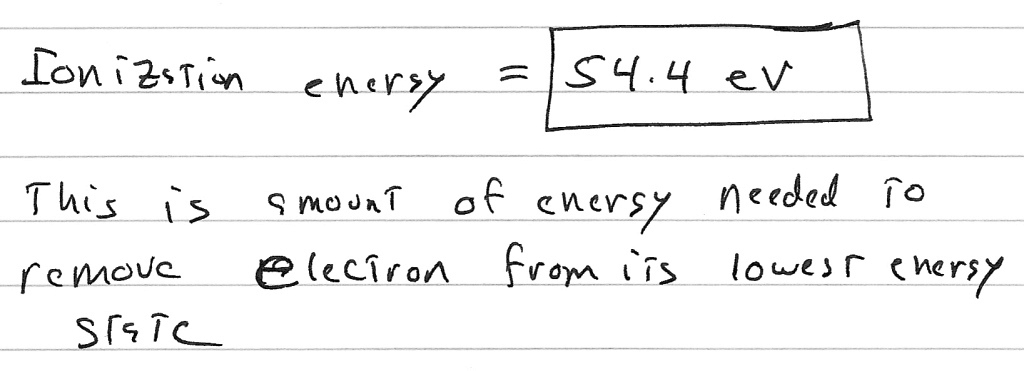 Ionization energy = 54.4 eV
This is amount of energy needed to
remove electron from its lowest energy
state